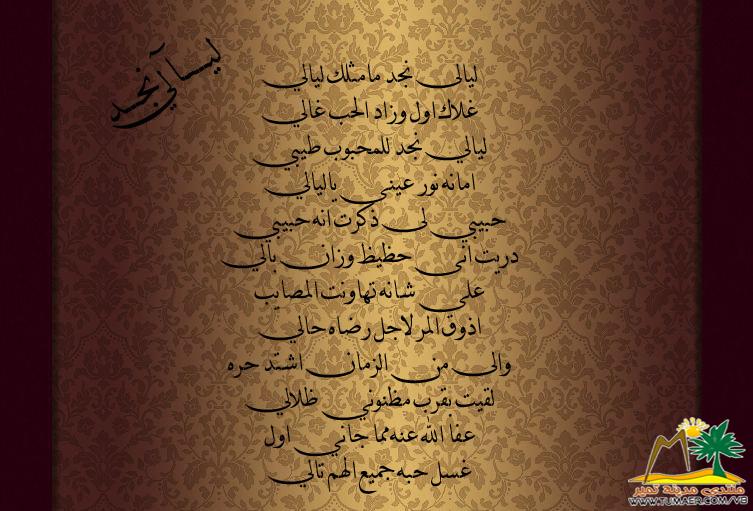 ليالي نجد
ليالي نجد مامثلك ليالي
غلاك اول وزاد الحب غالي
ليالي نجد للمحبوب طيبي
امانه نور عيني ياليالي
حبيبي لى ذكرت انه حبيبي
دريت اني حظيظ وزان بالي
على شانه تهاونت المصايب
اذوق المر لاجل رضاه حالي
والى من الزمان اشتد حره
لقيت بقرب مظنوني ظلالي
عفا الله عنه مما جاني اول
غسل حبه جميع الهم تالي
منتدى مدينة تمير
WWW.TUMAER.COM/VB